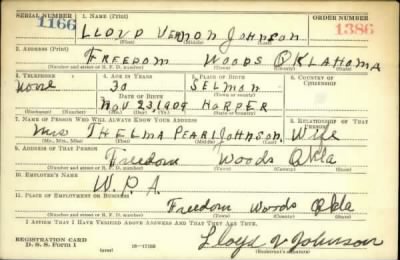 SERIAL NUMBER 1. NAME (Print) ORDER NUMBER
1166 LLOYD VERNON JOHNSON 1386
(First) (Middle) (Last)
2. ADDRESS (Print)
FREEDOM WOODS OKLAHOMA
(Number and street or R. F. D. number) (Town) (County) (State)
3. TELEPHONE 4. AGE IN YEARS 5. PLACE OF BIRTH 6. COUNTRY OF CITIZENSHIP
none 30 SELMAN
DATE OF BIRTH
Nov 23, 1909 HARPER
(Exchange) (Number) (Mo.) (Day) (Yr.) (State or country)
7. NAME OF PERSON WHO WILL ALWAYS KNOW YOUR ADDRESS 8. RELATIONSHIP OF THAT PERSON
Mrs THELMA PEARL JOHNSON Wife
(Mr., Mrs., Miss) (First) (Middle) (Last)
9. ADDRESS OF THAT PERSON
Freedom Woods Okla
(Number and street or R. F. D. number) (Town) (County) (State)
10. EMPLOYER'S NAME
W.P.A.
11. PLACE OF EMPLOYMENT OR BUSINESS
Freedom Woods Okla
(Number and street or R. F. D. number) (Town) (County) (State)
I AFFIRM THAT I HAVE VERIFIED ABOVE ANSWERS AND THAT THEY ARE TRUE.
REGISTRATION CARD
D. S. S. Form 1 16—17105 Lloyd V Johnson
(Registrant's signature)